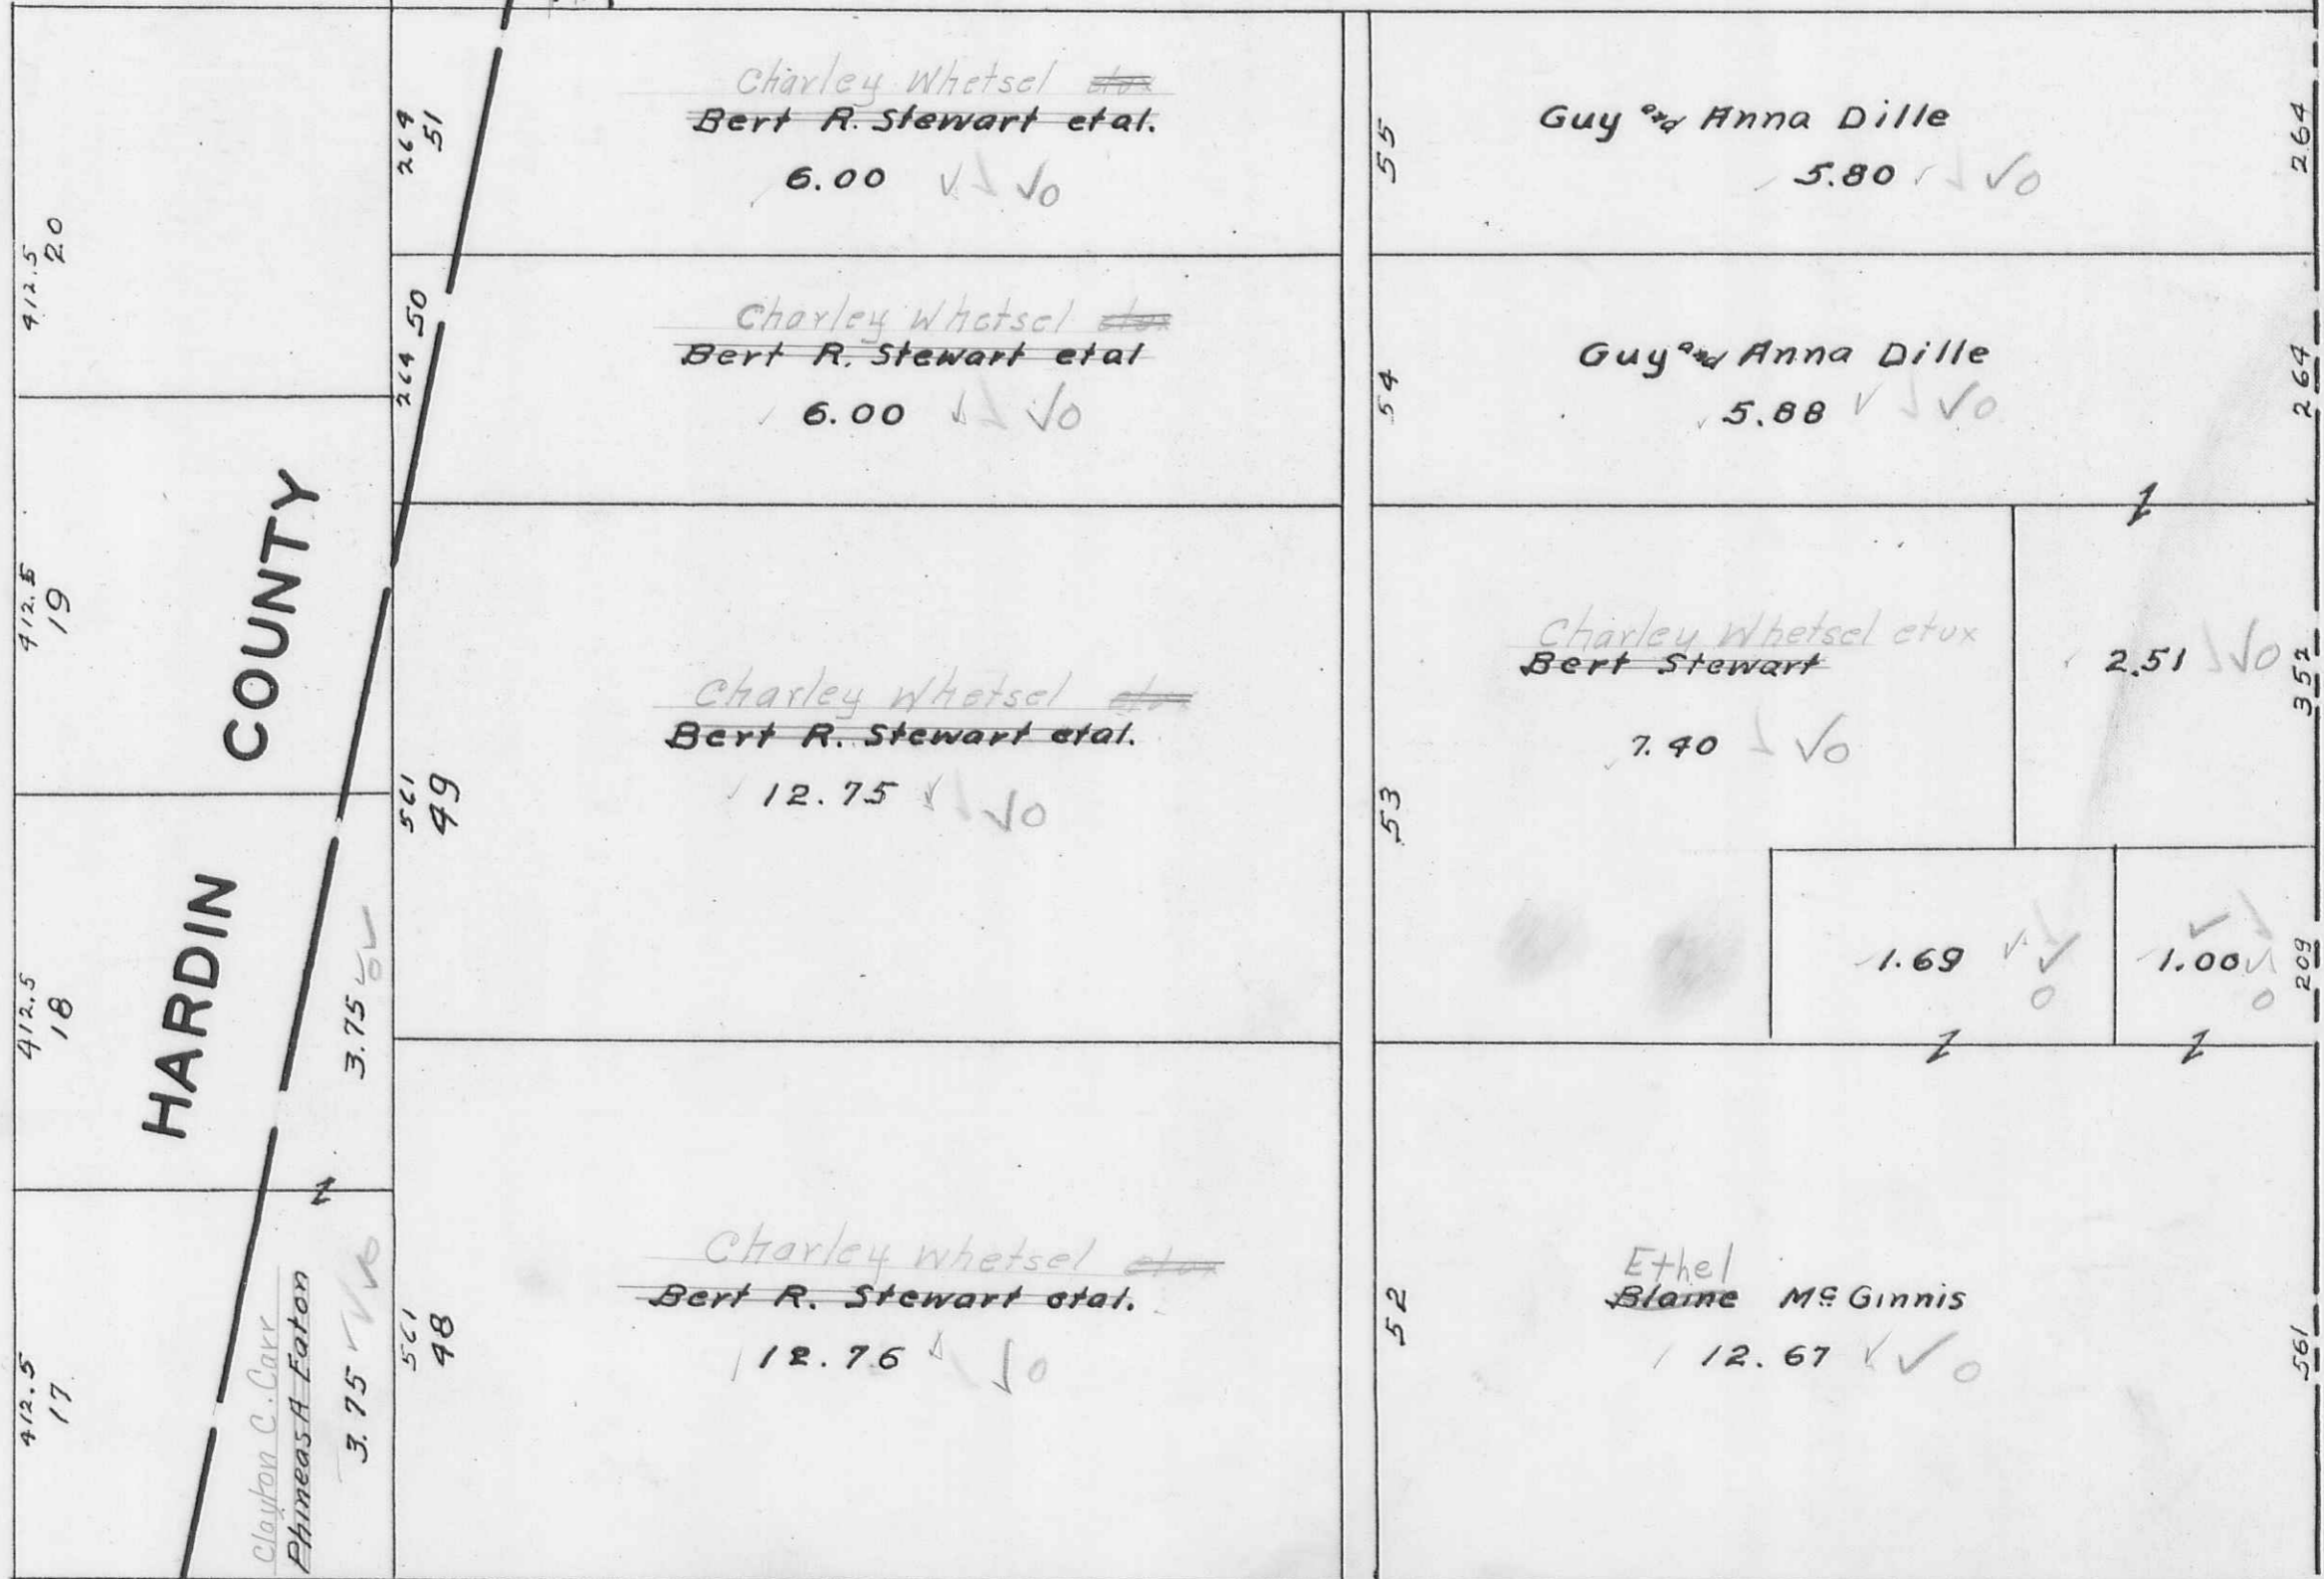 412.5
20
412.5
19
412.5
18
412.5
17
HARDIN COUNTY
3.75
Clayton C. Carr
Phineas A Eaton
3.75
264
51
Charley Whetsel etux
Bert R. Stewart etal.
6.00
264 50
Charley Whetsel etux
Bert R. Stewart etal
6.00
561
49
Charley Whetsel etux
Bert R. Stewart etal.
12.75
561
48
Charley Whetsel etux
Bert R. Stewart etal.
12.76
55
Guy and Anna Dille
5.80
264
54
Guy and Anna Dille
5.88
264
53
Charley Whetsel etux
Bert Stewart
7.40
2.51
352
1.69
1.00
209
52
Ethel
Blaine Mc Ginnis
12.67
561